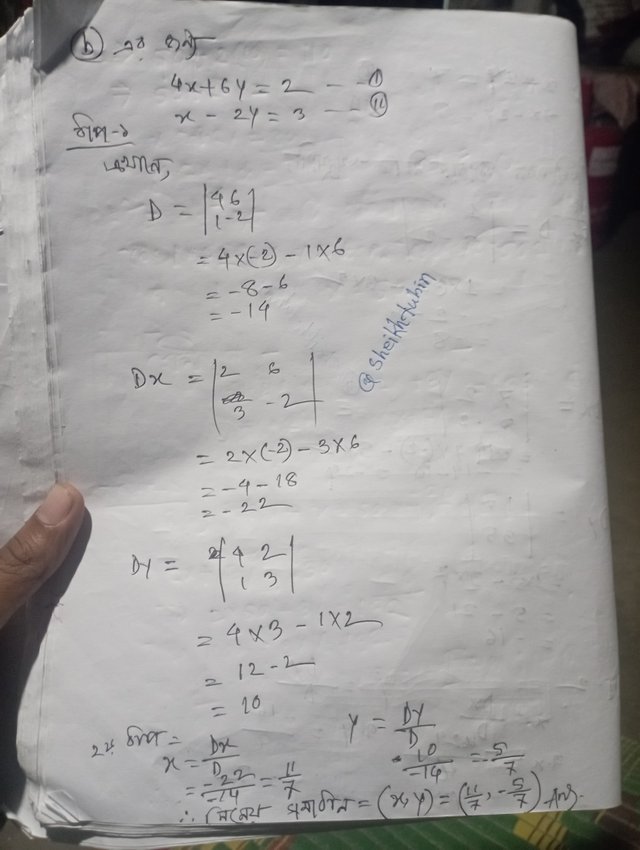 (b) এর জন্য
4x+6y = 2 --- (i)
x - 2y = 3 --- (ii)
ধাপ-১
এখানে,
D = |4 6|
|1 -2|
= 4×(-2) - 1×6
= -8-6
= -14
@Sheikhtuhin
Dx = |2 6|
|3 -2|
= 2×(-2) - 3×6
= -4-18
= -22
Dy = |4 2|
|1 3|
= 4×3 - 1×2
= 12-2
= 10
২য় ধাপ =
x = Dx/D
= -22/-14 = 11/7
y = Dy/D
10/-14 = -5/7
∴ নির্ণেয় সমাধান = (x,y) = (11/7, -5/7) Ans.